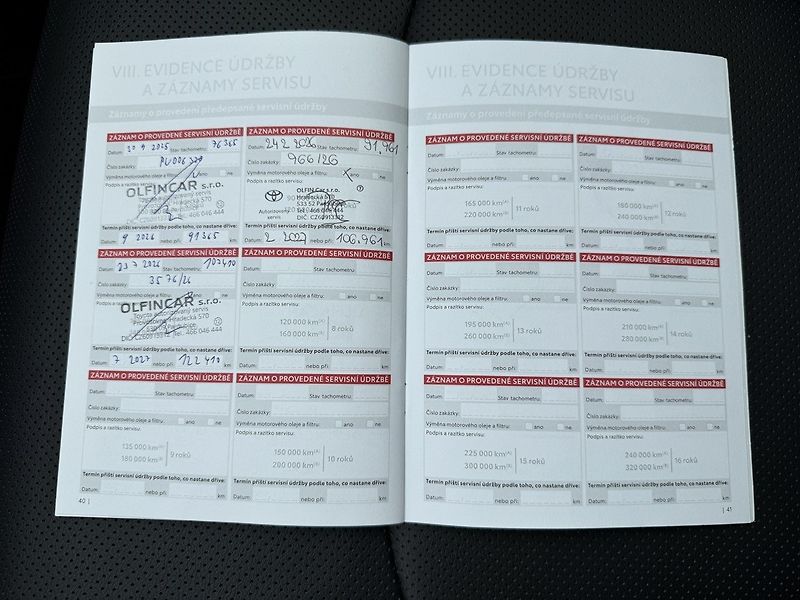 VIII. EVIDENCE ÚDRŽBY
A ZÁZNAMY SERVISU
Záznamy o provedení předepsané servisní údržby
ZÁZNAM O PROVEDENÉ SERVISNÍ ÚDRŽBĚ
Datum: 20 9 2025 Stav tachometru: 76 365
Číslo zakázky:
Výměna motorového oleje a filtru: ano ne
Podpis a razítko servisu:
OLFINCAR s.r.o.
Toyota autorizovaný servis
Tel.: 466 046 444
Termín příští servisní údržby podle toho, co nastane dříve:
Datum: 9 2026 nebo při: 91365 km
ZÁZNAM O PROVEDENÉ SERVISNÍ ÚDRŽBĚ
Datum: 24 2 2026 Stav tachometru: 91.961
Číslo zakázky: 966/26
Výměna motorového oleje a filtru: X ano ne
Podpis a razítko servisu:
OLFIN Car s.r.o.
Hradecká 570
533 52 Pardubice
Tel.: 466 046 444
DIČ: CZ60913312
Autorizovaný
servis
Termín příští servisní údržby podle toho, co nastane dříve:
Datum: 2 2027 nebo při: 106.961 km
ZÁZNAM O PROVEDENÉ SERVISNÍ ÚDRŽBĚ
Datum: 23 7 2026 Stav tachometru: 107410
Číslo zakázky: 3576/26
Výměna motorového oleje a filtru: ano ne
Podpis a razítko servisu:
OLFINCAR s.r.o.
Toyota autorizovaný servis
Provozovna Hradecká 570
Tel.: 466 046 444
Termín příští servisní údržby podle toho, co nastane dříve:
Datum: 7 2027 nebo při: 122 410 km
ZÁZNAM O PROVEDENÉ SERVISNÍ ÚDRŽBĚ
Datum: Stav tachometru:
Číslo zakázky:
Výměna motorového oleje a filtru: ano ne
Podpis a razítko servisu:
120 000 km(A)
160 000 km(B)
8 roků
Termín příští servisní údržby podle toho, co nastane dříve:
Datum: nebo při: km
ZÁZNAM O PROVEDENÉ SERVISNÍ ÚDRŽBĚ
Datum: Stav tachometru:
Číslo zakázky:
Výměna motorového oleje a filtru: ano ne
Podpis a razítko servisu:
135 000 km(A)
180 000 km(B)
9 roků
Termín příští servisní údržby podle toho, co nastane dříve:
Datum: nebo při: km
ZÁZNAM O PROVEDENÉ SERVISNÍ ÚDRŽBĚ
Datum: Stav tachometru:
Číslo zakázky:
Výměna motorového oleje a filtru: ano ne
Podpis a razítko servisu:
150 000 km(A)
200 000 km(B)
10 roků
Termín příští servisní údržby podle toho, co nastane dříve:
Datum: nebo při: km
40 |
VIII. EVIDENCE ÚDRŽBY
A ZÁZNAMY SERVISU
Záznamy o provedení předepsané servisní údržby
ZÁZNAM O PROVEDENÉ SERVISNÍ ÚDRŽBĚ
Datum: Stav tachometru:
Číslo zakázky:
Výměna motorového oleje a filtru: ano ne
Podpis a razítko servisu:
165 000 km(A)
220 000 km(B)
11 roků
Termín příští servisní údržby podle toho, co nastane dříve:
Datum: nebo při: km
ZÁZNAM O PROVEDENÉ SERVISNÍ ÚDRŽBĚ
Datum: Stav tachometru:
Číslo zakázky:
Výměna motorového oleje a filtru: ano ne
Podpis a razítko servisu:
180 000 km(A)
240 000 km(B)
12 roků
Termín příští servisní údržby podle toho, co nastane dříve:
Datum: nebo při: km
ZÁZNAM O PROVEDENÉ SERVISNÍ ÚDRŽBĚ
Datum: Stav tachometru:
Číslo zakázky:
Výměna motorového oleje a filtru: ano ne
Podpis a razítko servisu:
195 000 km(A)
260 000 km(B)
13 roků
Termín příští servisní údržby podle toho, co nastane dříve:
Datum: nebo při: km
ZÁZNAM O PROVEDENÉ SERVISNÍ ÚDRŽBĚ
Datum: Stav tachometru:
Číslo zakázky:
Výměna motorového oleje a filtru: ano ne
Podpis a razítko servisu:
210 000 km(A)
280 000 km(B)
14 roků
Termín příští servisní údržby podle toho, co nastane dříve:
Datum: nebo při: km
ZÁZNAM O PROVEDENÉ SERVISNÍ ÚDRŽBĚ
Datum: Stav tachometru:
Číslo zakázky:
Výměna motorového oleje a filtru: ano ne
Podpis a razítko servisu:
225 000 km(A)
300 000 km(B)
15 roků
Termín příští servisní údržby podle toho, co nastane dříve:
Datum: nebo při: km
ZÁZNAM O PROVEDENÉ SERVISNÍ ÚDRŽBĚ
Datum: Stav tachometru:
Číslo zakázky:
Výměna motorového oleje a filtru: ano ne
Podpis a razítko servisu:
240 000 km(A)
320 000 km(B)
16 roků
Termín příští servisní údržby podle toho, co nastane dříve:
Datum: nebo při: km
| 41